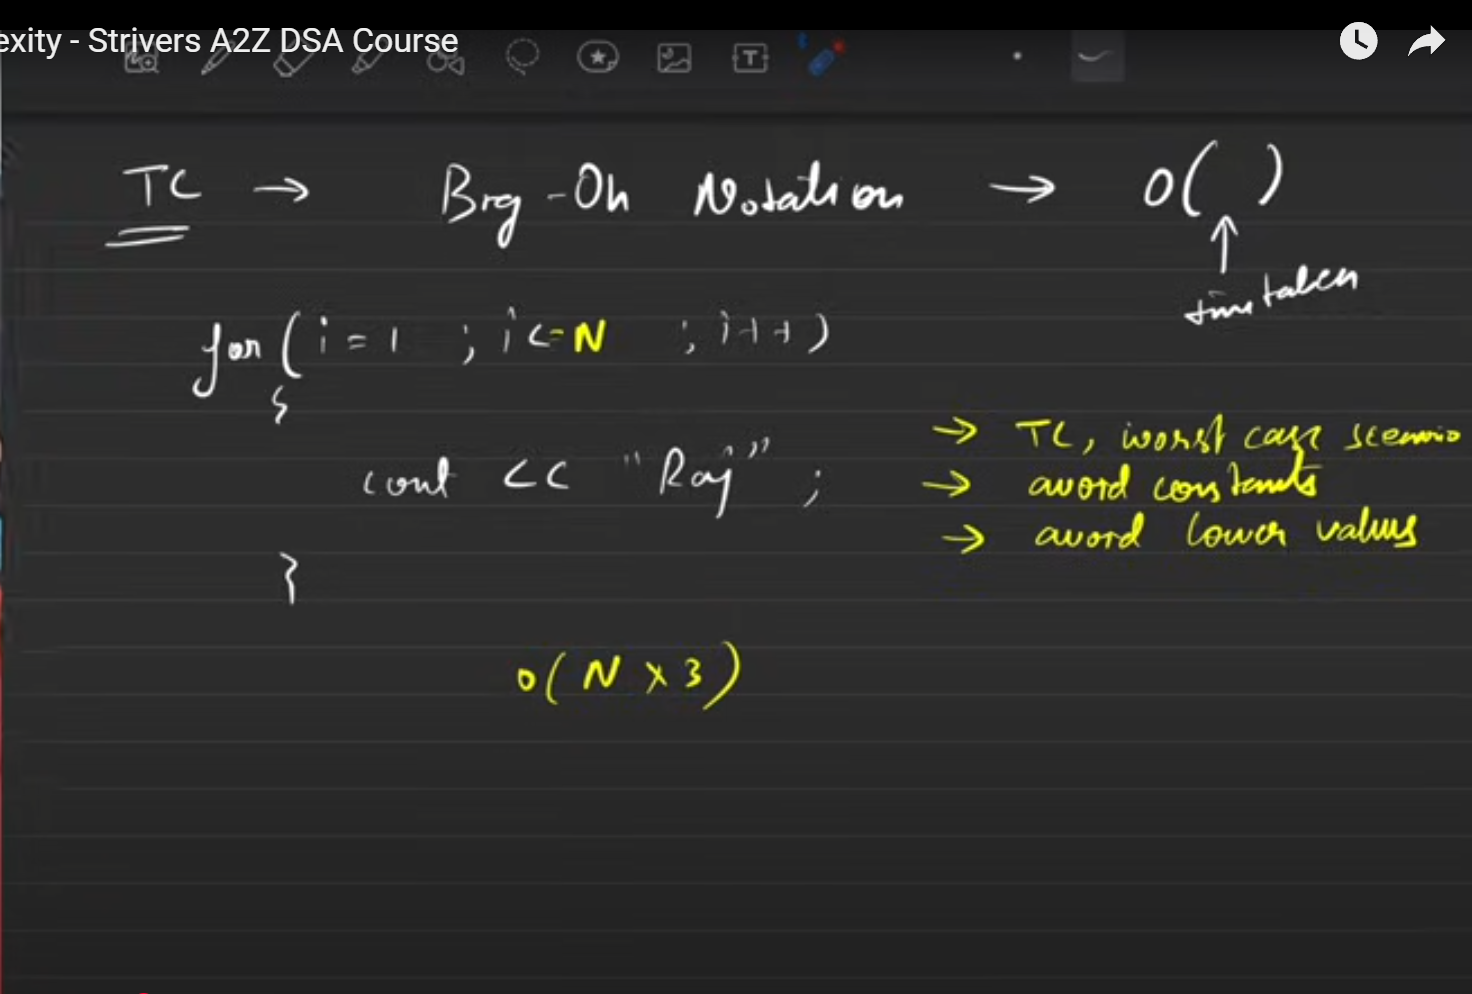 exity - Strivers A2Z DSA Course
TC → Big-Oh Notation → O( )
↑
time taken
for ( i = 1 ; i <= N ; i++ )
{
cout << "Raj" ;
}
→ TC, worst case scenario
→ avoid constants
→ avoid lower values
O( N x 3 )